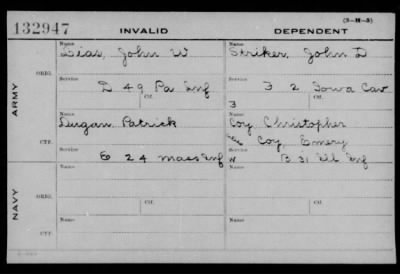 (3-M-3)
132947 INVALID DEPENDENT
Name Name
Dias, John W Striker, John D
ORIG.
Service Service
D 49 Pa Inf 3 2 Iowa Cav
Ctf. Ctf.
3
ARMY
Name Name
Durgan Patrick Coy, Christopher
Coy, Emery
CTF.
Service Service
E 24 Mass Inf W B 31 Ill Inf
Name Name
ORIG.
Service Service
Ctf. Ctf.
NAVY
Name Name
CTF.